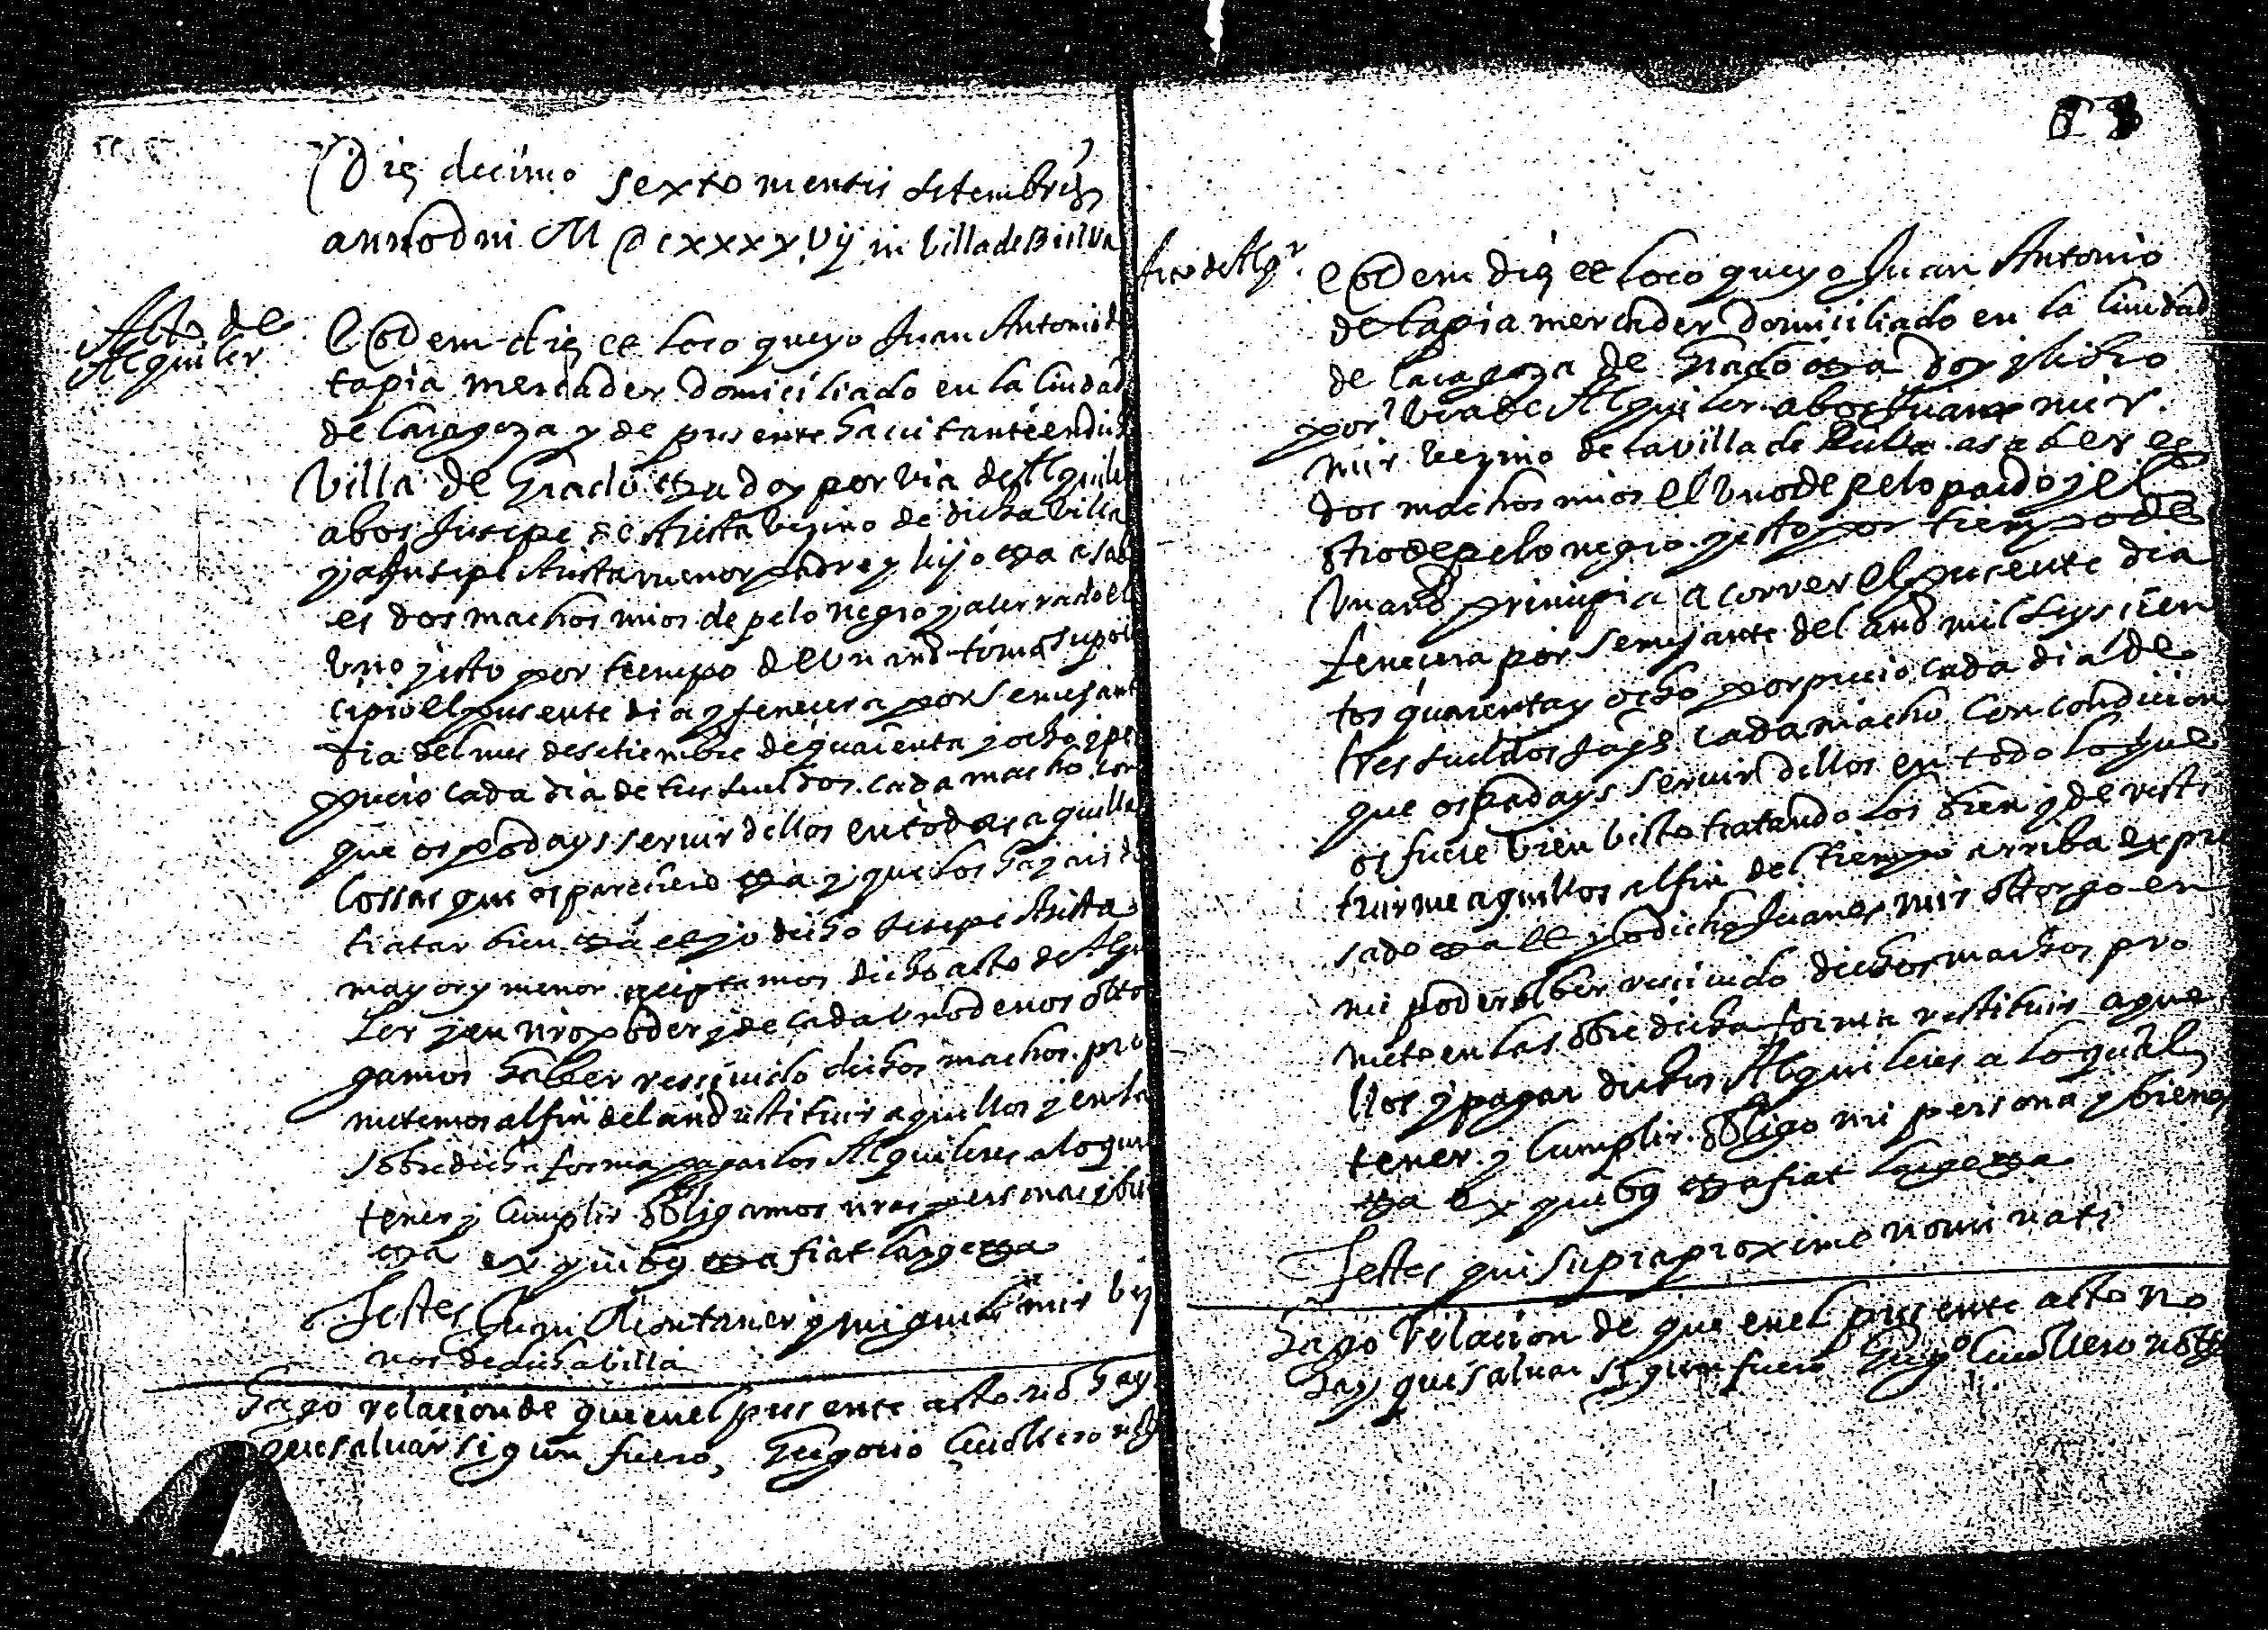 Die decimo sexto mensis setembris
anno dni M DCxxxxvij in villa de Biel va
Acto de
Alquiler
Eodem die et loco que yo Juan Antonio de
tapia mercader domiciliado en la Ciudad
de Caragoza y de presente hauitante en dich
villa de Grado &a doy por via de Alquiler
a bos Jusepe de Arista vezino de dicha villa
y a Jusepe Arista menor padre y hijo &a a sab
es dos machos mios de pelo negro y aterrado el
vno y esto por tiempo de vn año toma su prin
cipio el presente dia y fenecera por semejant
dia del mes de setiembre de quarenta y ocho y pre
precio cada dia de tres sueldos cada macho con
que os podays seruir dellos en todas aquellas
cossas que os pareciere &a y que los hayais de
tratar bien &a et yo dicho Jusepe Arista
mayor y menor aceptamos dicho acto de Alqui
ler y en nro poder y de cada vno de nos otor
gamos haber resciuido dichos machos pro
metemos al fin del año restituir aquellos y en la
sobredicha forma pagar los Alquileres a lo qual
tener y cumplir obligamos nras personas y bie
&a ex quibus &a fiat large &a
Testes Juan Montaner y miguel mir vezi
nos de dicha villa
Hago relacion de que en el presente acto no hay
que saluar sigun fuero, Gregorio Cuollero not
Acto de Alqr.
Eodem die et loco que yo Juan Antonio
de tapia mercader domiciliado en la Ciudad
de Caragoza de Grado &a doy y libro
por via de Alquiler a bos Juanes mir
mir vezino de la villa de asaber es
dos machos mios el vno de pelo pardo y el
otro de pelo negro y esto por tiempo de
vn año principia a correr el presente dia
fenecera por semejante del año mil seys cien
tos quarenta y ocho por precio cada dia de
tres sueldos Jaqs cada macho con condicion
que os podays seruir dellos en todo lo que
os fuere bien visto tratandolos bien y de resti
tuirme aquellos al fin del tiempo arriba expre
sado &a et yo dicho Juanes mir otorgo en
mi poder haber resciuido dichos machos pro
meto en la sobre dicha forma restituir aque
llos y pagar dichos Alquileres a lo qual
tener y cumplir obligo mi persona y bienes
&a ex quibus &a fiat large &a
Testes qui supra proxime nominati
Hago relacion de que en el presente acto no
hay que saluar sigun fuero Gregº Cuollero not